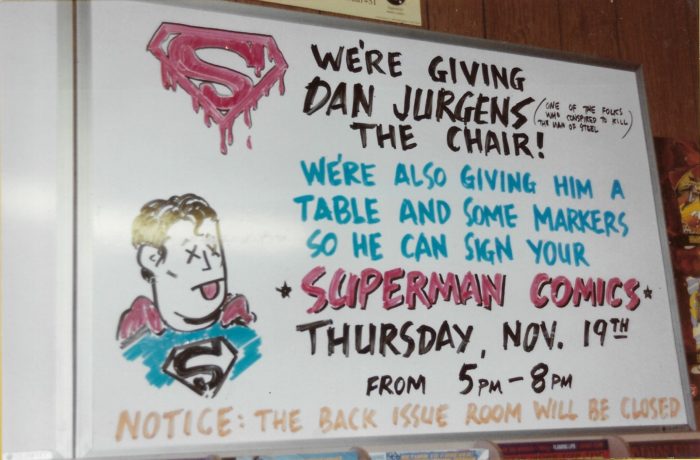 WE'RE GIVING
DAN JURGENS
(ONE OF THE FOLKS
WHO CONSPIRED TO KILL
THE MAN OF STEEL)
THE CHAIR!
WE'RE ALSO GIVING HIM A
TABLE AND SOME MARKERS
SO HE CAN SIGN YOUR
SUPERMAN COMICS
THURSDAY, NOV. 19TH
FROM 5PM-8PM
NOTICE: THE BACK ISSUE ROOM WILL BE CLOSED